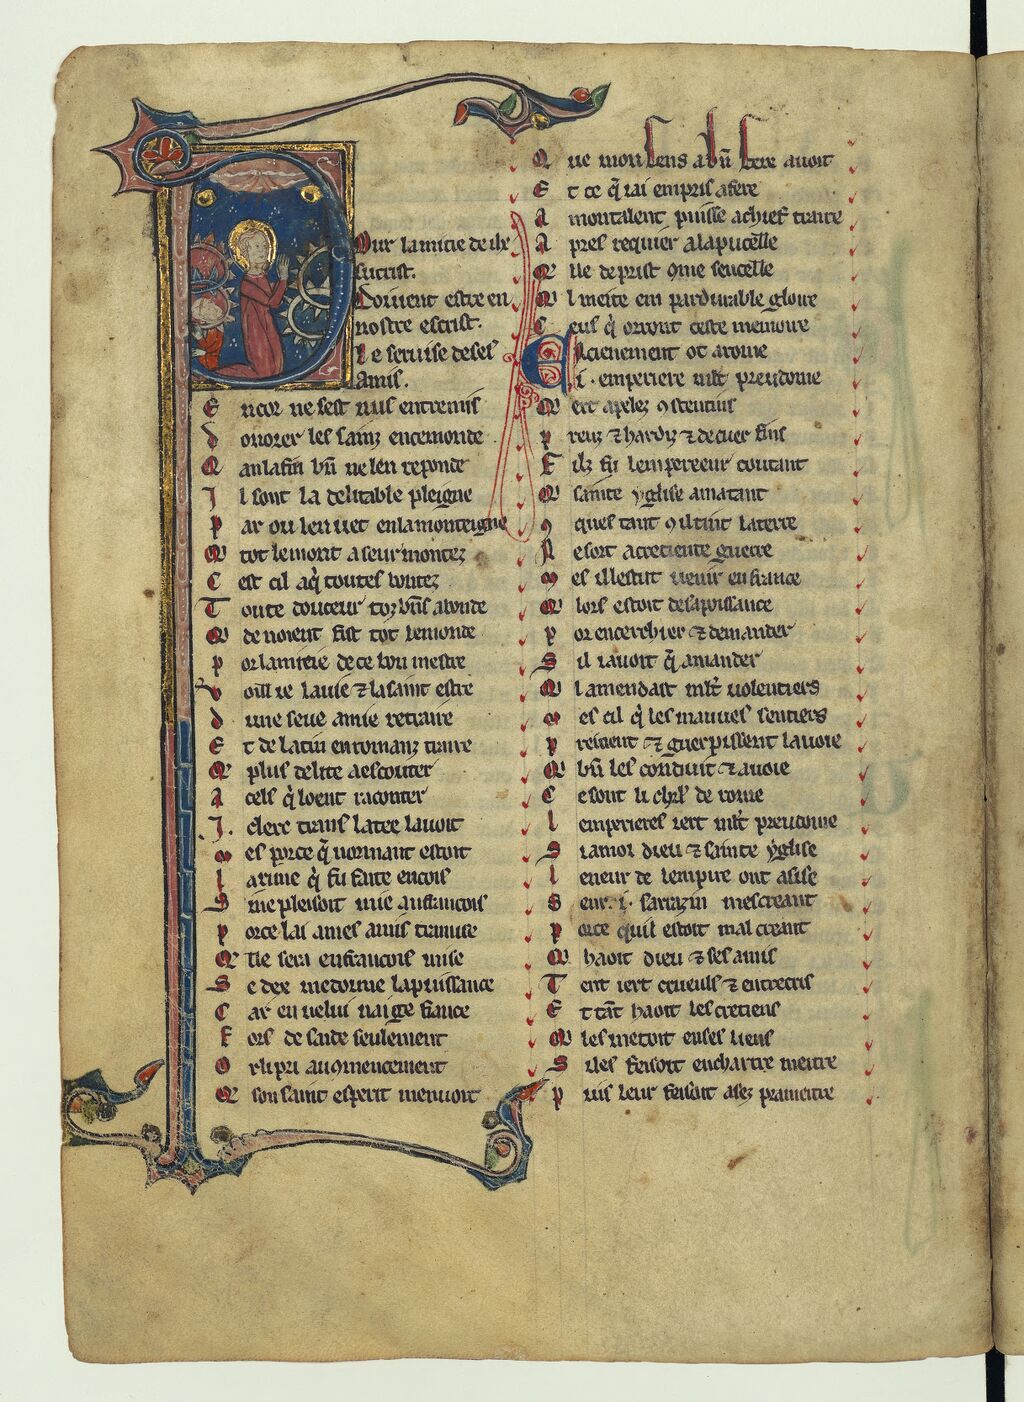 Pour lamitie de ihe
sucrist.
Doivent estre en
nostre escrist.
Le servise de ses
Amis.
E ncor ne sest nus entremis
d onorer les sainz en ce monde
Q an la fin bn̄ ne len reponde
I l sont la delitable pleigne
P ar ou len vet en la monteigne
Q tot le mont a seur montez
C est cil a q̄ toutes bontez
T oute douceur toz bn̄s abonde
Q de noient fist tot le monde
P or lamitie de ce bon mestre
V oill ie la vie ⁊ la saint estre
d une seue amie retraire
E t de latin en romanz traire
Q plus delite a escouter
A cels q̄ loent raconter
.I. clerc translatee lavoit
M es porce q̄ normant estoit
L a rime q̄ fu faite encois
S i ne pleisoit mie as francois
P orce la i a mes amis tramise
Q ele sera en francois mise
S e dex me done la puissance
C ar en celui nai ge fiance
F ors de sande seulement
O r li pri au conmencement
Q son saint esperit menvoit
Q ue mon sens a bn̄ fere avoit
E t ce q̄ iai empris a fere
A mon talent puisse a chief traire
A pres requier a la pucelle
Q lle deprist 9me sencelle
Q l meite em pardurable gloire
C eus q̄ orront ceste memoire
Ancienement ot a rome
.i. emperiere mlt preudome
Q ert apelez 9stentins
P reuz ⁊ hardiz ⁊ de cuer fins
F ilz fu lempereeur coutant
Q sainte yglise ama tant
9 ques tant 9 il tint la terre
N e sort a cretiente guerre
M es il lestut venir en france
Q lors estoit de sa poissance
P or encerchier ⁊ demander
S il i avoit q̄ amander
Q lamendast mlt volentiers
M es cil q̄ les mauves sentiers
P reinent ⁊ guerpissent la voie
Q bn̄ les conduit ⁊ avoie
C e sont li chr̄l de rome
L emperieres iert mlt preudome
S i amoi dieu ⁊ sainte yglise
L eneur de lempire ont asise
S eur .i. sarrazin mescreant
P orce quil estoit mal creant
Q haoit dieu ⁊ ses amis
T ent iert crueuls ⁊ entrecris
E t tāt haoit les cretiens
Q les metoit en ses liens
S i les fesoit en chartre metre
P uis leur fesoit asez prametre